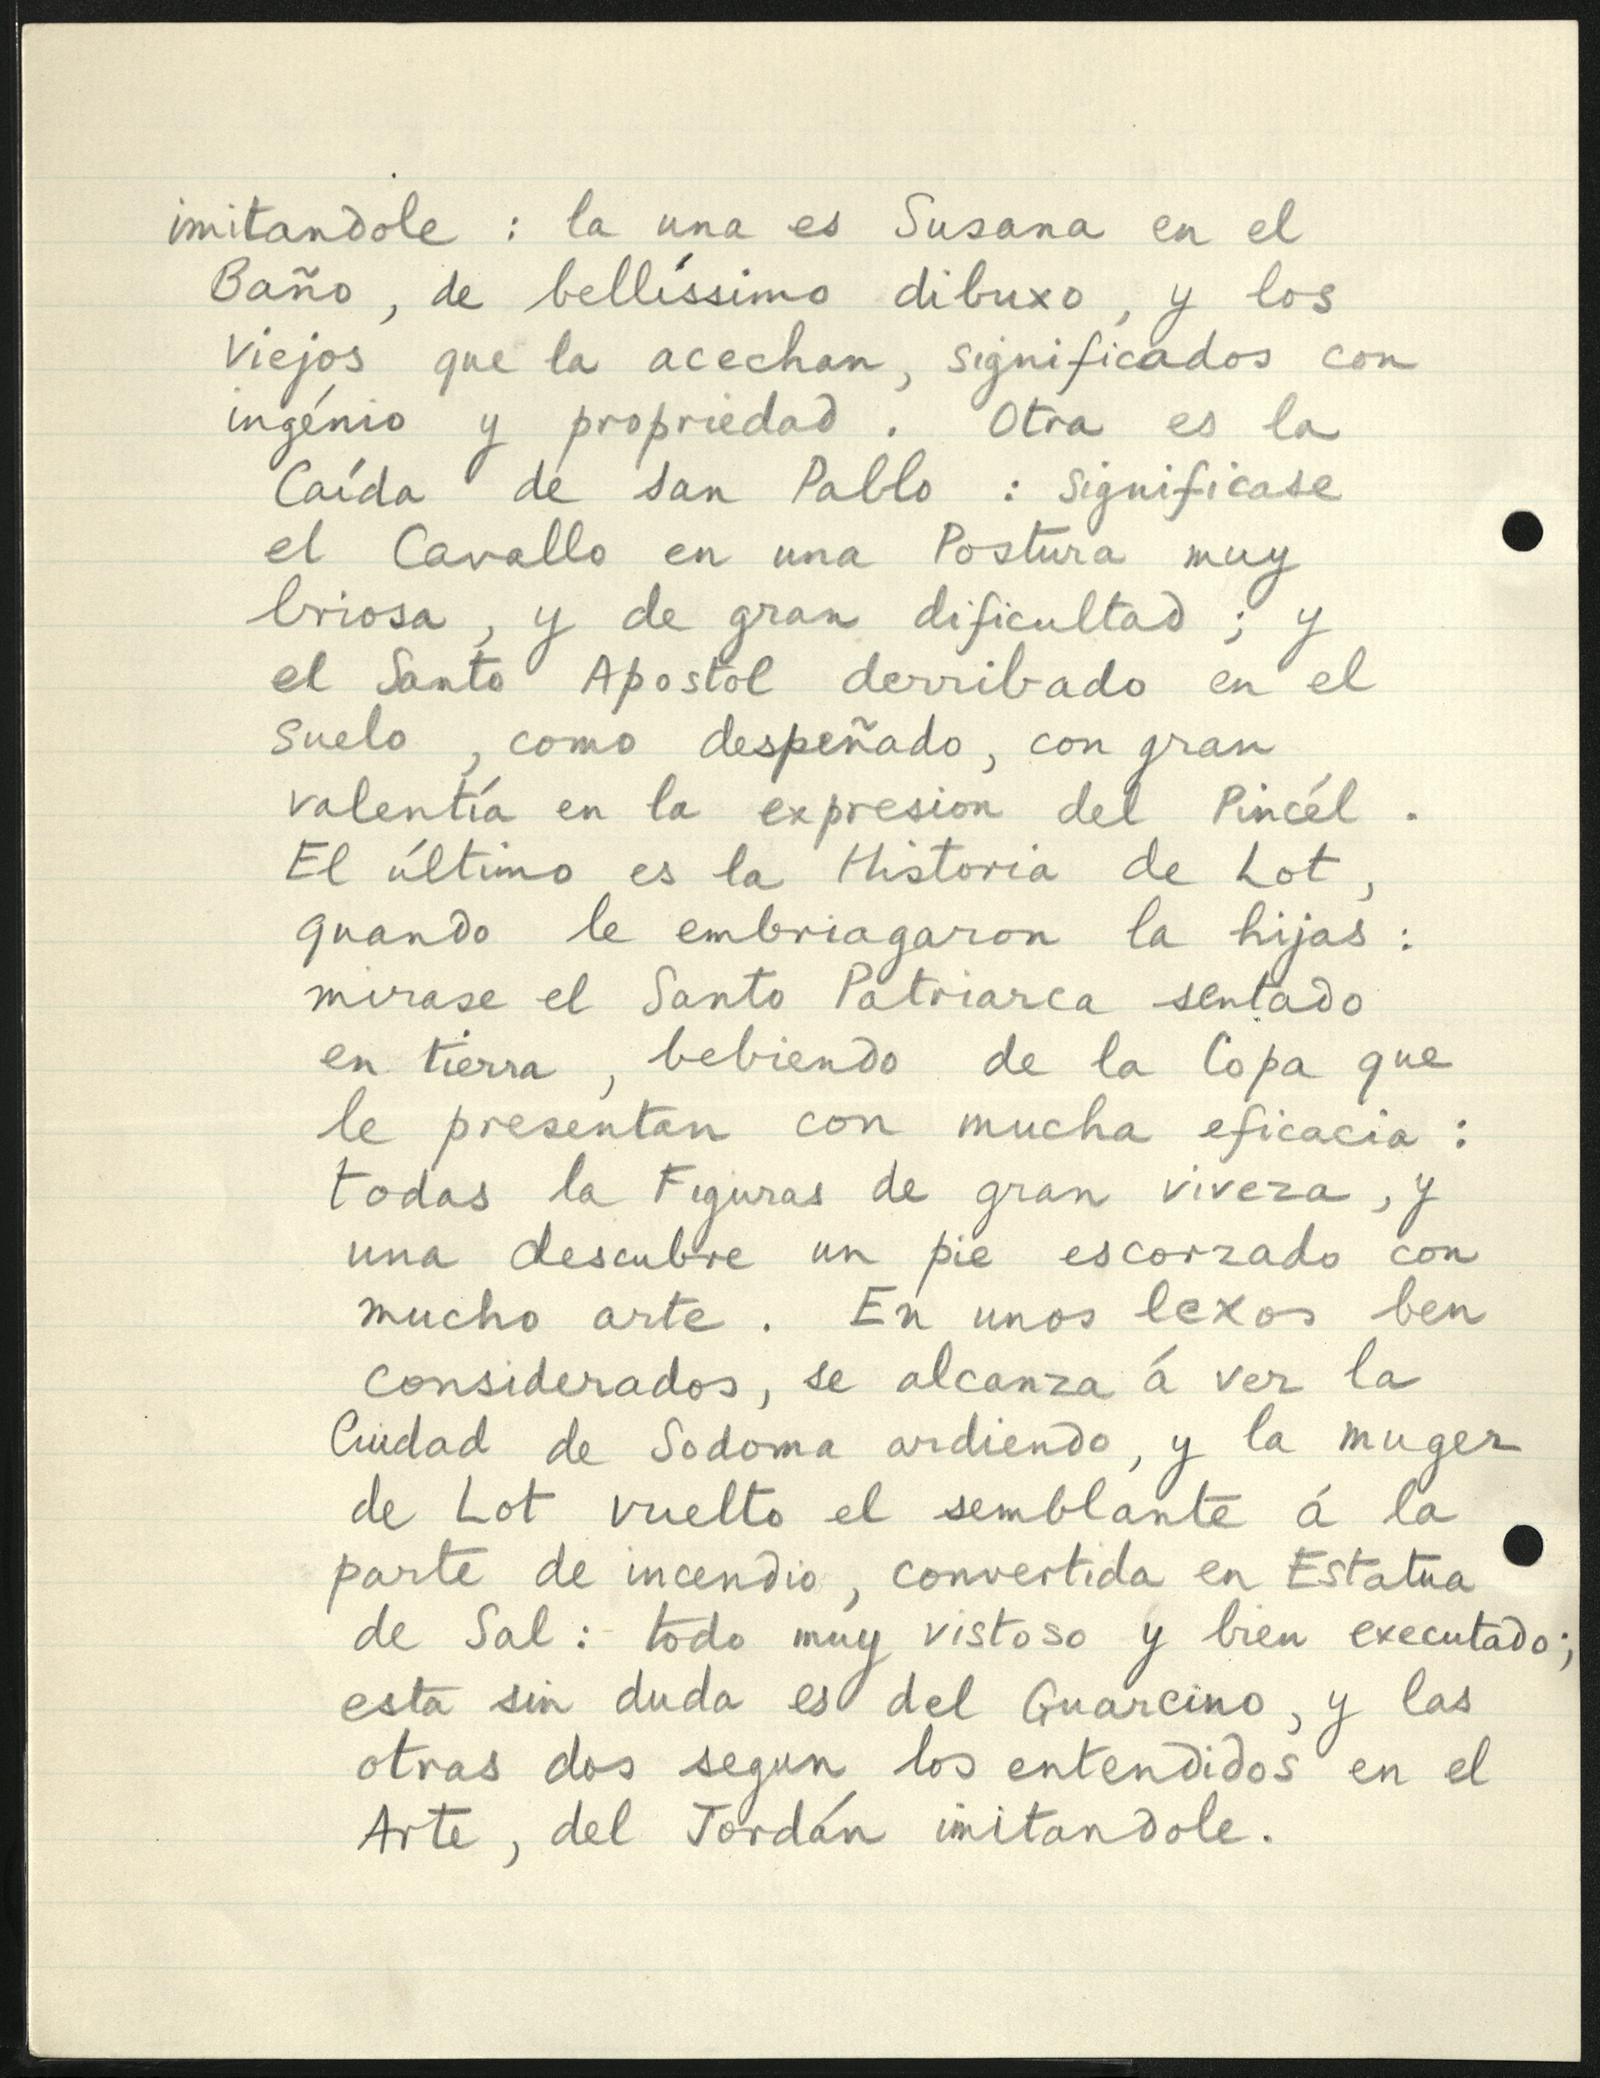 imitandole : la una es Susana en el
Baño, de bellíssimo dibuxo, y los
Viejos que la acechan, significados con
ingénio y propriedad. Otra es la
Caída de San Pablo : significase
el Cavallo en una Postura muy
briosa, y de gran dificultad ; y
el Santo Apostol derribado en el
suelo, como despeñado, con gran
valentía en la expresion del Pincél.
El último es la Historia de Lot,
quando le embriagaron la hijas :
mirase el Santo Patriarca sentado
en tierra, bebiendo de la Copa que
le presentan con mucha eficacia :
todas la Figuras de gran viveza, y
una descubre un pie escorzado con
mucho arte. En unos lexos ben
considerados, se alcanza á ver la
Ciudad de Sodoma ardiendo, y la muger
de Lot vuelto el semblante á la
parte de incendio, convertida en Estatua
de Sal : todo muy vistoso y bien executado ;
esta sin duda es del Guarcino, y las
otras dos segun los entendidos en el
Arte, del Jordán imitandole.